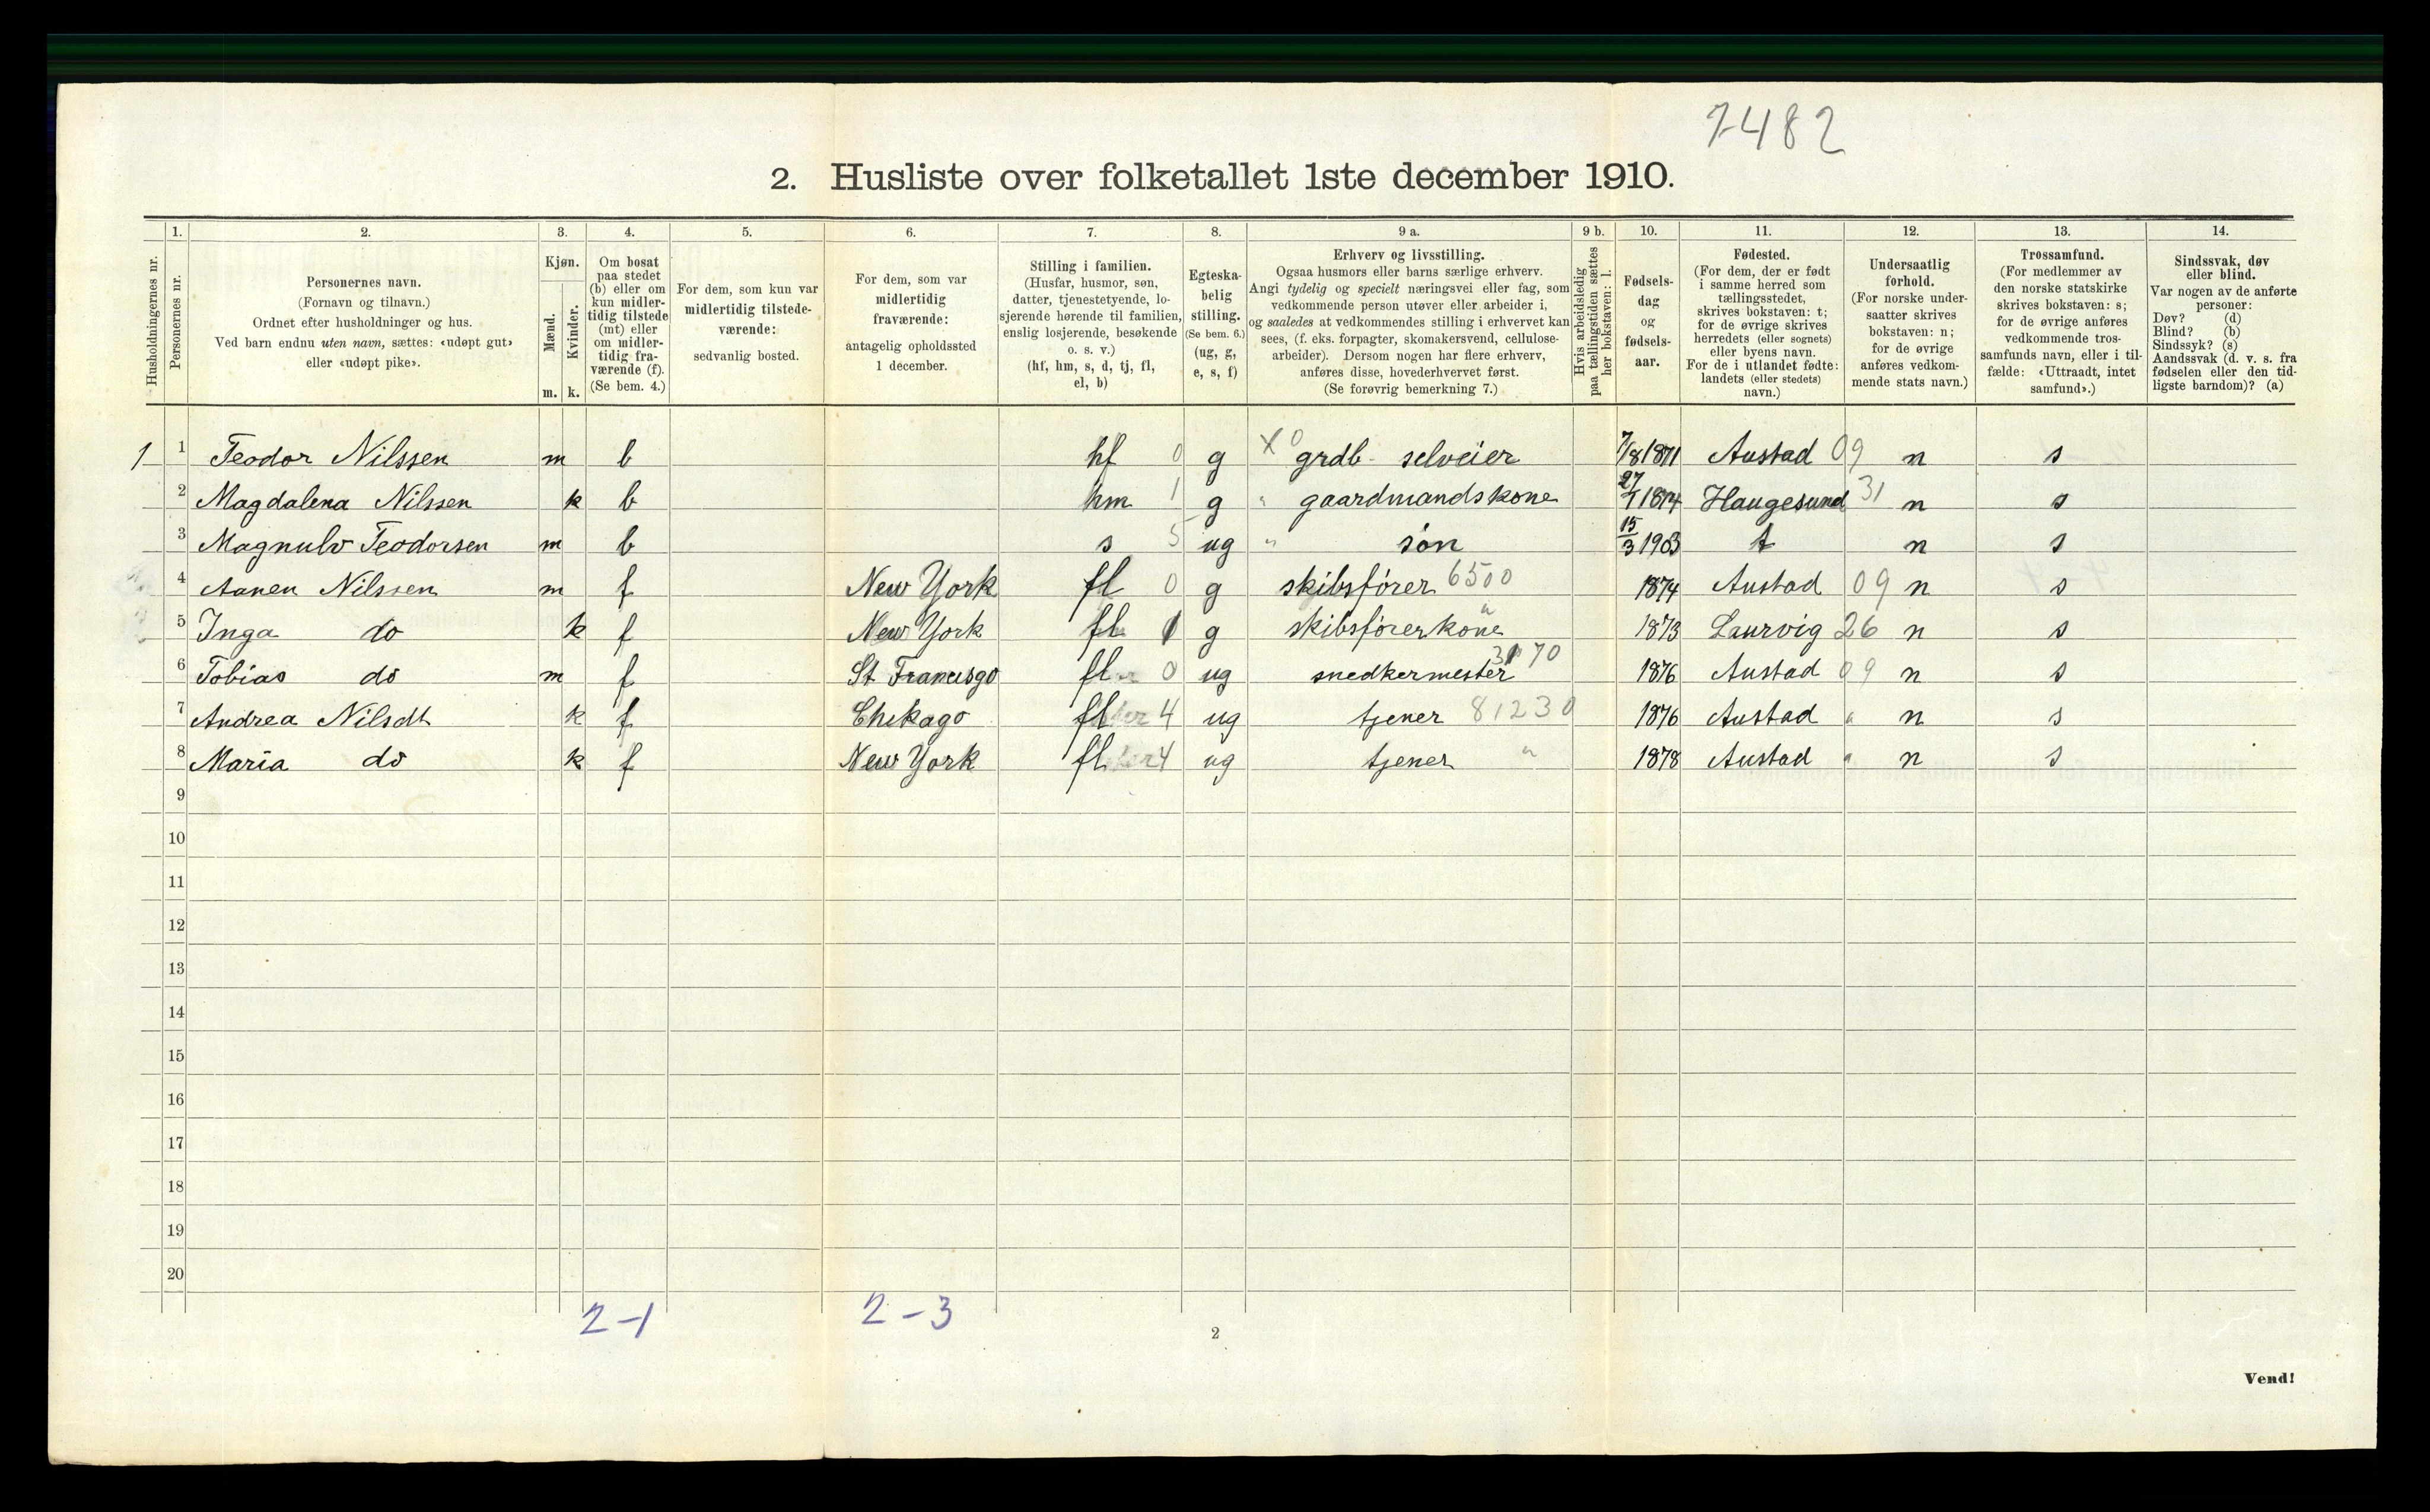 7482
2. Husliste over folketallet 1ste december 1910.
1. 2. 3. 4. 5. 6. 7. 8. 9 a. 9 b. 10. 11. 12. 13. 14.
Husholdningernes nr.
Personernes nr.
Personernes navn.
(Fornavn og tilnavn.)
Ordnet efter husholdninger og hus.
Ved barn endnu uten navn, sættes: «udøpt gut»
eller «udøpt pike».
Kjøn.
Mænd.
Kvinder.
m. k.
Om bosat
paa stedet
(b) eller om
kun midler-
tidig tilstede
(mt) eller
om midler-
tidig fra-
værende (f).
(Se bem. 4.)
For dem, som kun var
midlertidig tilstede-
værende:
sedvanlig bosted.
For dem, som var
midlertidig
fraværende:
antagelig opholdssted
1 december.
Stilling i familien.
(Husfar, husmor, søn,
datter, tjenestetyende, lo-
sjerende hørende til familien,
enslig losjerende, besøkende
o. s. v.)
(hf, hm, s, d, tj, fl,
el, b)
Egteska-
belig
stilling.
(Se bem. 6.)
(ug, g,
e, s, f)
Erhverv og livsstilling.
Ogsaa husmors eller barns særlige erhverv.
Angi tydelig og specielt næringsvei eller fag, som
vedkommende person utøver eller arbeider i,
og saaledes at vedkommendes stilling i erhvervet kan
sees, (f. eks. forpagter, skomakersvend, cellulose-
arbeider). Dersom nogen har flere erhverv,
anføres disse, hovederhvervet først.
(Se forøvrig bemerkning 7.)
Hvis arbeidsledig
paa tællingstiden sættes
her bokstaven: l.
Fødsels-
dag
og
fødsels-
aar.
Fødested.
(For dem, der er født
i samme herred som
tællingsstedet,
skrives bokstaven: t;
for de øvrige skrives
herredets (eller sognets)
eller byens navn.
For de i utlandet fødte:
landets (eller stedets)
navn.)
Undersaatlig
forhold.
(For norske under-
saatter skrives
bokstaven: n;
for de øvrige
anføres vedkom-
mende stats navn.)
Trossamfund.
(For medlemmer av
den norske statskirke
skrives bokstaven: s;
for de øvrige anføres
vedkommende tros-
samfunds navn, eller i til-
fælde: «Uttraadt, intet
samfund».)
Sindssvak, døv
eller blind.
Var nogen av de anførte
personer:
Døv? (d)
Blind? (b)
Sindssyk? (s)
Aandssvak (d. v. s. fra
fødselen eller den tid-
ligste barndom)? (a)
1 1 Teodor Nilssen m b hf 0 g X 0 grdb. selveier 7/8 1871 Austad 09 n s
2 Magdalena Nilssen k b hm 1 g " gaardmandskone 27/1 1874 Haugesund 31 n s
3 Magnulv Teodorsen m b s 5 ug " søn 15/3 1903 t n s
4 Aanen Nilssen m f New York fl 0 g skibsfører 6500 1874 Austad 09 n s
5 Inga do k f New York fl 1 g skibsførerkone " 1873 Laurvig 26 n s
6 Tobias do m f St Francisgo fl 0 ug snedkermester 3170 1876 Austad 09 n s
7 Andrea Nilsdt k f Chekago fl 4 ug tjener 81230 1876 Austad " n s
8 Maria do k f New York fl 4 ug tjener " 1878 Austad " n s
9
10
11
12
13
14
15
16
17
18
19
20
2-1 2-3
2
Vend!